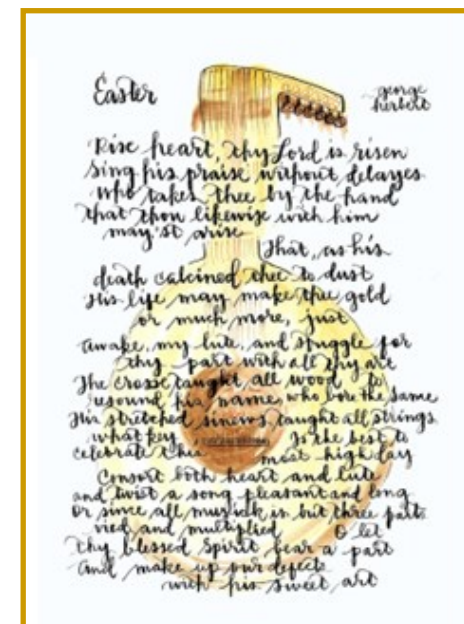 Easter
george
herbert
Rise heart, thy Lord is risen
Sing his praise without delayes
Who takes thee by the hand
that thou likewise with him
may'st arise
That, as his
death calcined thee to dust
His life may make thee gold
or much more, just
Awake, my lute, and struggle for
thy part with all thy art
The crosse taught all wood to
resound his name, who bore the same
His stretched sinews taught all strings
what key Is the best to
celebrate this most high day
Consort both heart and lute
and twist a song pleasant and long
Or since all musick is but three part
vied and multiplied O let
thy blessed Spirit bear a part
And make up our defects
with his sweet art